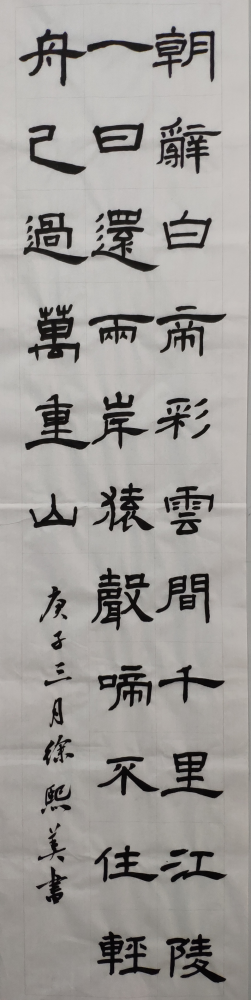 朝辭白帝彩雲間千里江陵
一日還兩岸猿聲啼不住輕
舟已過萬重山
庚子三月徐熙美書